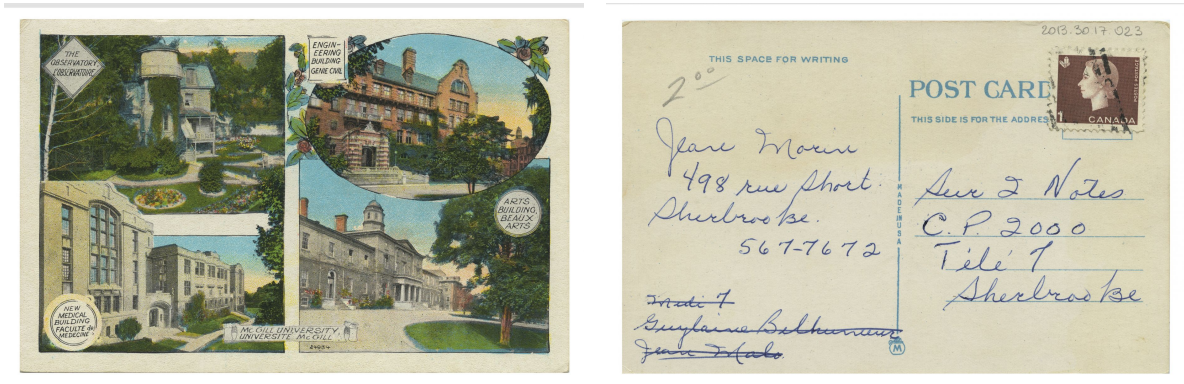 THE
OBSERVATORY
L'OBSERVATOIRE
ENGIN-
EERING
BUILDING
GENIE CIVIL
ARTS
BUILDING,
BEAUX
ARTS
NEW
MEDICAL
BUILDING
FACULTÉ de
MEDECINE
MCGILL UNIVERSITY,
UNIVERSITE MCGILL
2013.30.17.023
THIS SPACE FOR WRITING
2 00
POST CARD
THIS SIDE IS FOR THE ADDRES
1 CANADA
POSTES POSTAGE
Jean Morin
498 rue Short.
Sherbrooke.
567-7672
Midi 7
Guylaine
Jean Malo
MADE IN USA
M
Sur 2 Notes
C.P. 2000
Télé 7
Sherbrooke